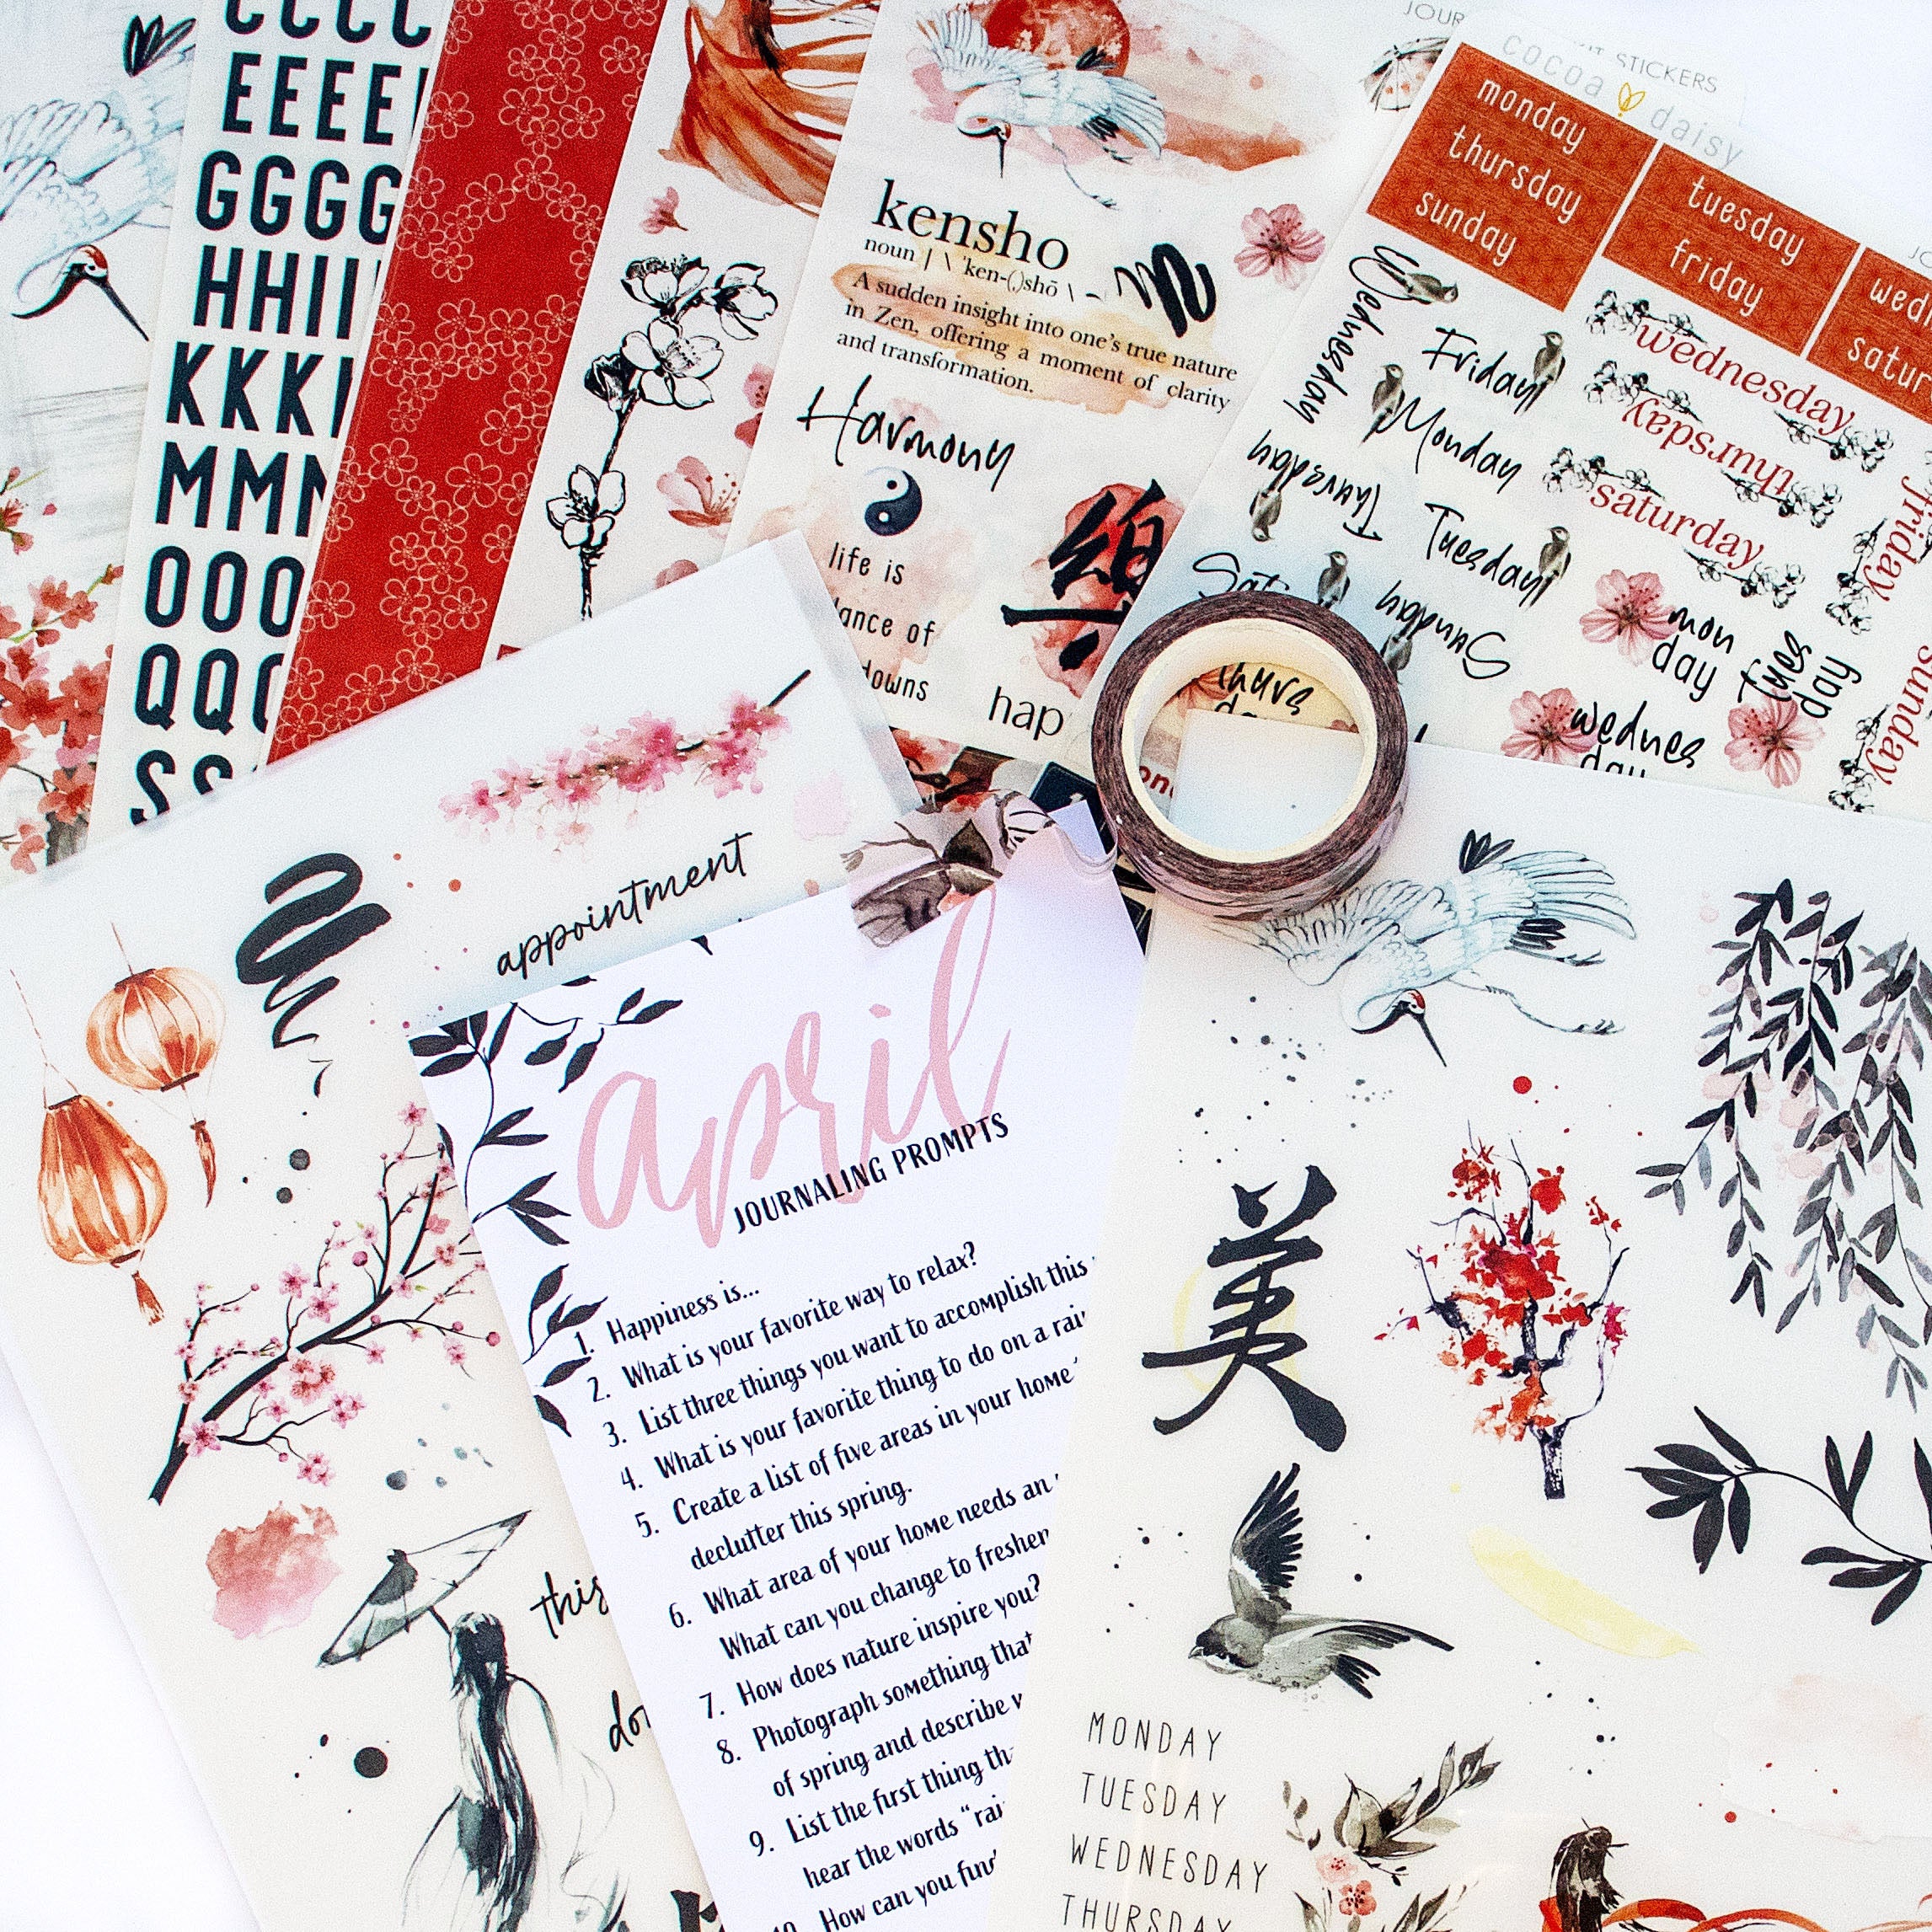 CCCC
EEEE
GGGG
HHII
KKK
MMN
OOO
QQ
SS
kensho
noun | \ 'ken-(,)shō \
A sudden insight into one's true nature
in Zen, offering a moment of clarity
and transformation.
Harmony
life is
of
downs
hap
JOUR
STICKERS
cocoa daisy
monday
thursday
sunday
tuesday
friday
wedn
satur
Wednesday
Friday
Monday
Thursday
Tuesday
Sat
Sunday
wednesday
thursday
saturday
friday
sunday
mon
day
tues
day
wednes
day
thurs
da
appointment
this
april
JOURNALING PROMPTS
1. Happiness is...
2. What is your favorite way to relax?
3. List three things you want to accomplish this
4. What is your favorite thing to do on a rai
5. Create a list of five areas in your home
declutter this spring.
6. What area of your home needs an
What can you change to freshen
7. How does nature inspire you?
8. Photograph something that
of spring and describe
9. List the first thing th
hear the words "rai
10. How can you find
美
MONDAY
TUESDAY
WEDNESDAY
THURSDAY